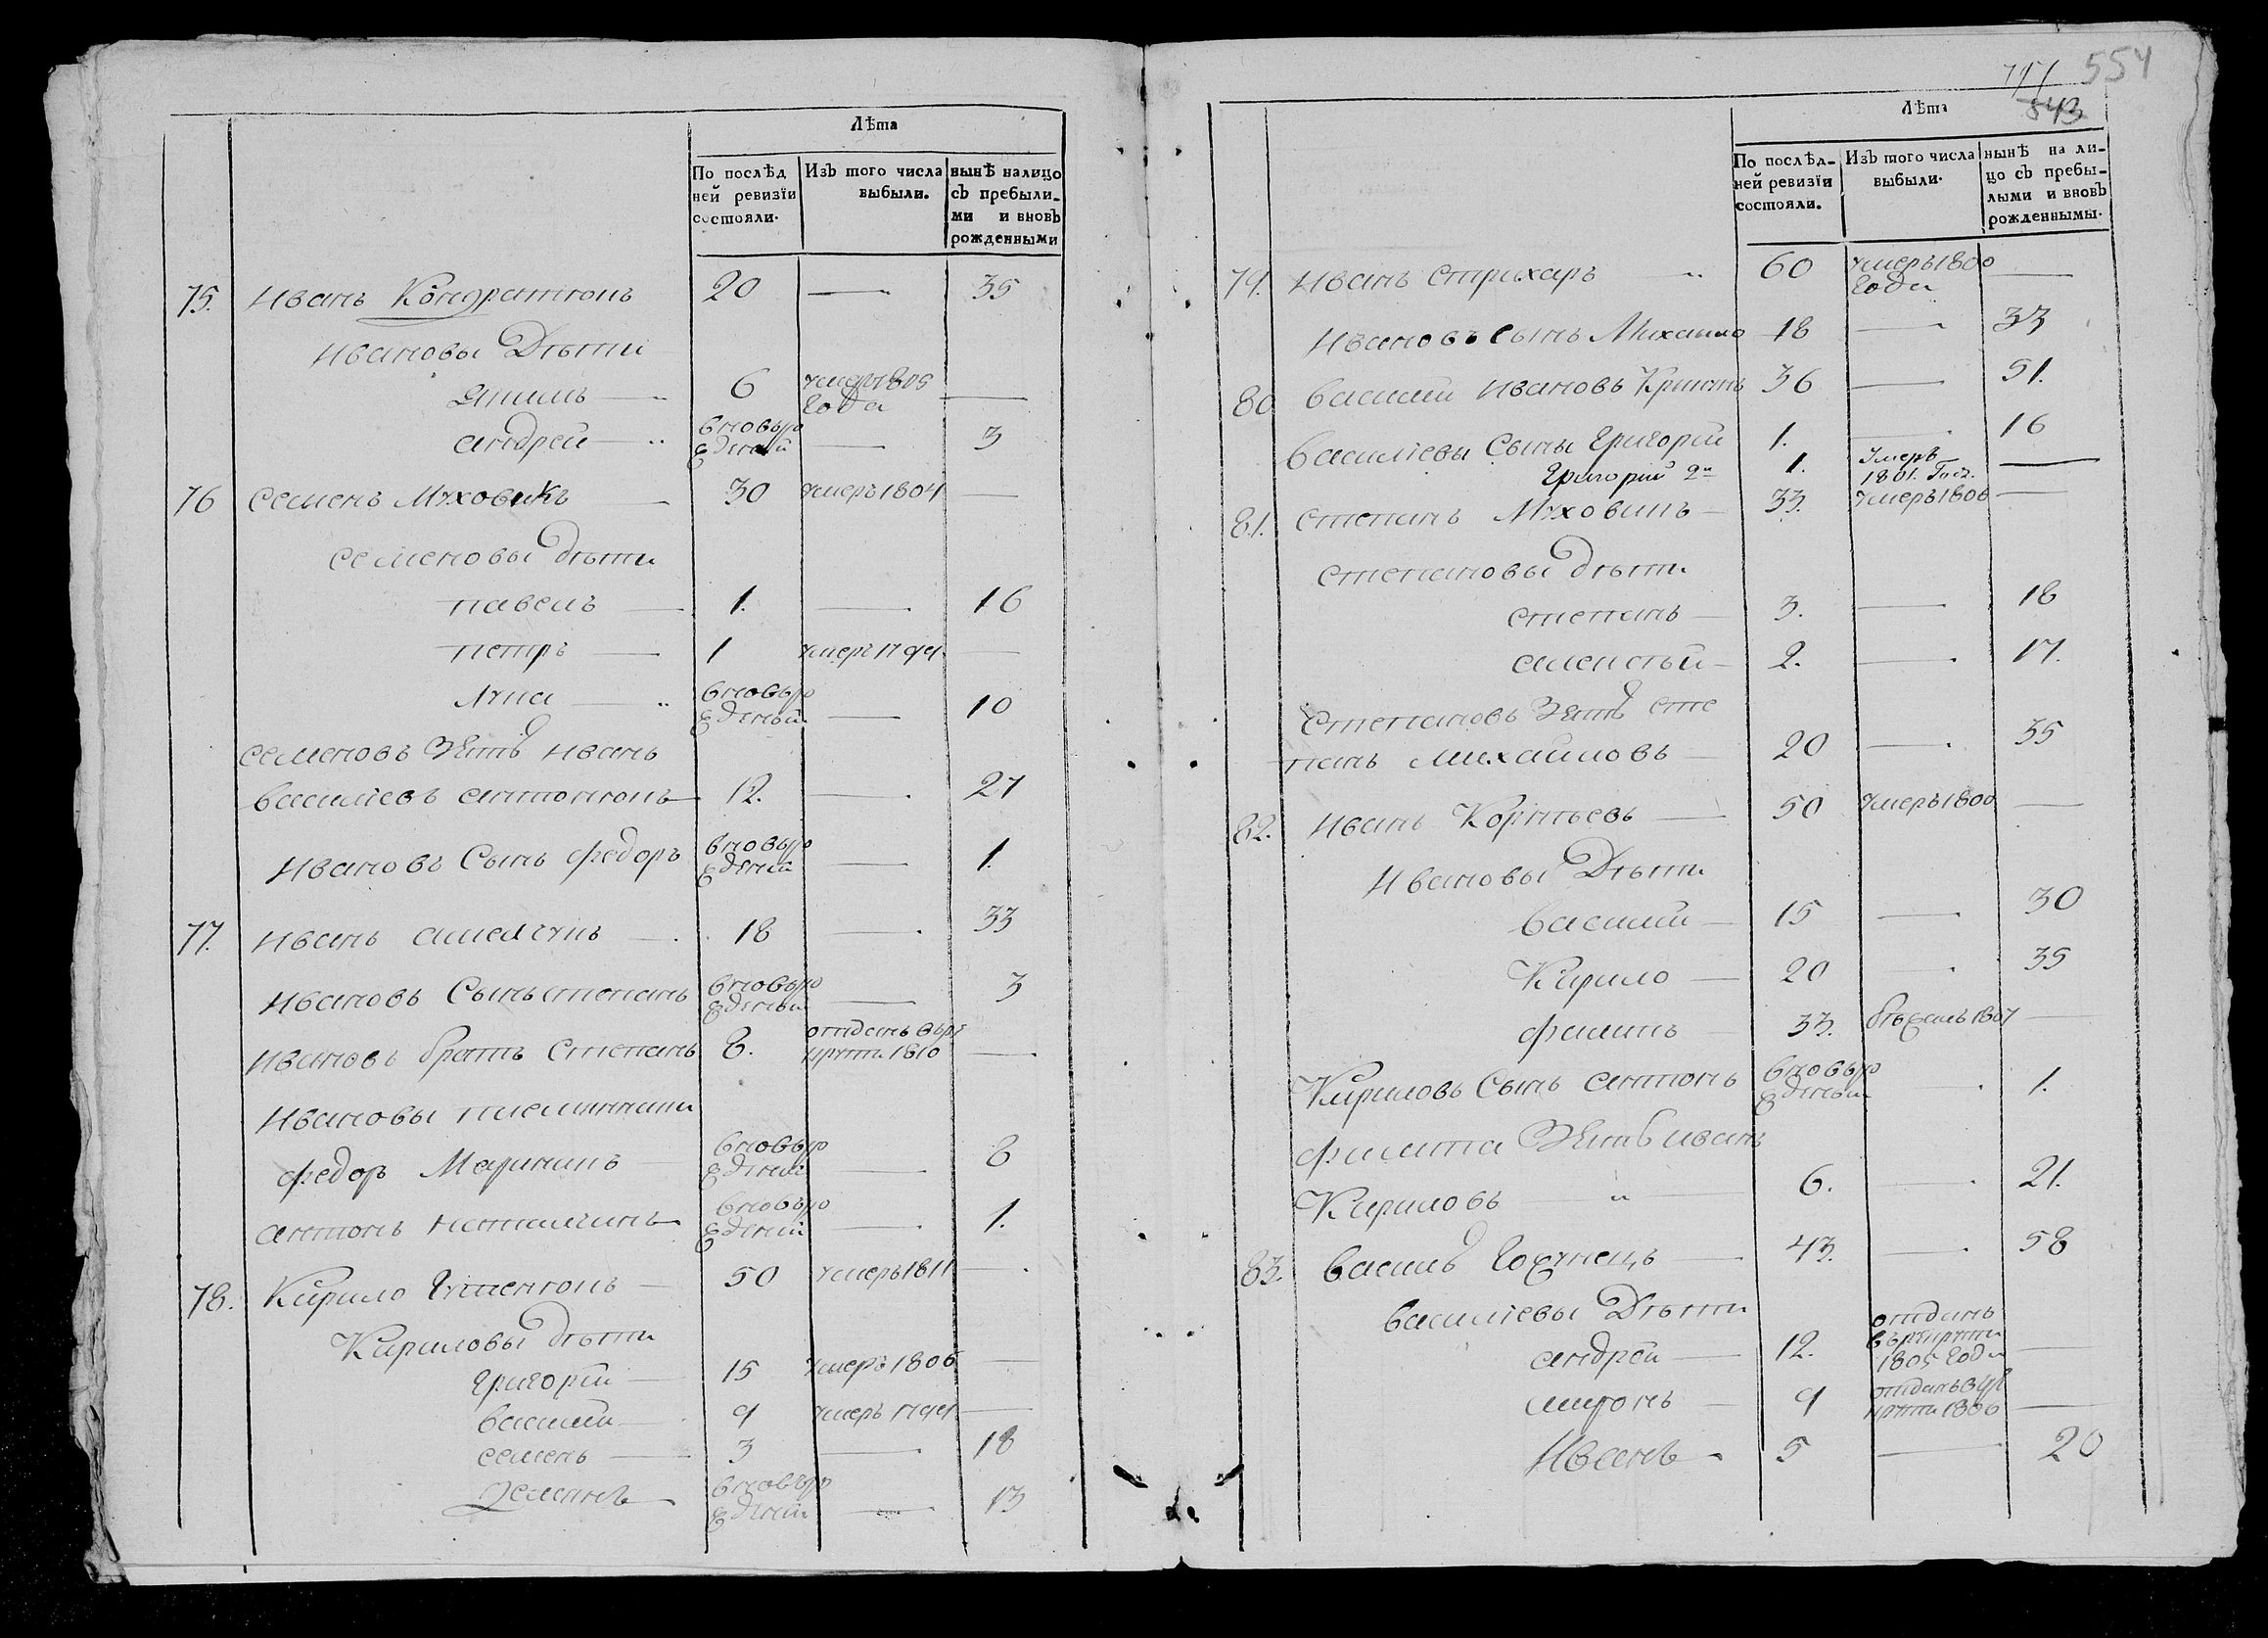 Лѣта
По послѣд
ней ревизїи
состояли.
Изъ того числа
выбыли.
нынѣ налицо
съ пребыли-
ми и вновь
рожденными
75. Иванъ Кондратюкъ 20 — 35
Ивановы Дѣти
6 умеръ 1805 года —
андрей — вновьро жденой — 3
76 Семенъ Муховикъ — 30 умеръ 1804 —
Семеновы дѣти
павелъ — 1. — 16
петръ — 1 умеръ 1799. —
лука — вновьро жденый — 10
Семеновъ Зять иванъ
василіевъ антонюкъ 12. — 27
Ивановъ Сынъ федоръ вновьро жденый — 1.
77. Иванъ — 18 — 33
Ивановъ Сынъ степанъ вновьро жденый — 3
Ивановъ братъ Степанъ 8. отданъ вре круты 1810 —
Ивановы племянники
федоръ вновьро жденый — 8
антонъ вновьро жденый — 1.
78. Кирило — 50 умеръ 1811 —
Кириловы дѣти
григорій — 15 умеръ 1806 —
василій — 9 умеръ 1799. —
семенъ — 3 — 18
Демянъ вновьро жденый — 13
554
543
Лѣта
По послѣд-
ней ревизїи
состояли.
Изъ того числа
выбыли.
нынѣ на ли-
цо съ пребы-
лыми и вновь
рожденнымы.
79. Иванъ стрихаръ 60 умеръ 1800 года —
Ивановъ сынъ Михайло 18 — 33
80 василій Ивановъ 36 — 51.
василіевы Сыны григорій 1. — 16
григорій 2й 1. Умеръ 1801. Года. —
81. степанъ Муховикъ — 33. умеръ 1800 —
степановы дѣти
степанъ — 3. — 18
алексѣй — 2. — 17.
Степановъ Зять сте
панъ михайловъ — 20 — 35
82. Иванъ Корнѣевъ — 50 умеръ 1800 —
Ивановы Дѣти
василій — 15 — 30
Кирило — 20 — 35
филипъ 33. бѣжалъ 1807 —
Кириловъ Сынъ антонъ вновьро жденый 1.
филипа Зять иванъ
Кириловъ — 6. — 21.
83. василь — 43. — 58
василіевы Дѣти
андрей — 12. отданъ врекруты 1805 года —
миронъ — 9 отданъ вре круты 1806 —
Иванъ 5 — 20